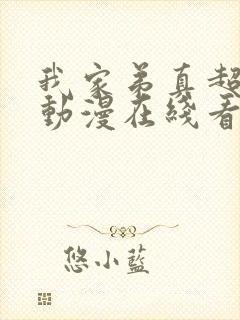 我家弟真超
動漫在綫看
悠小藍